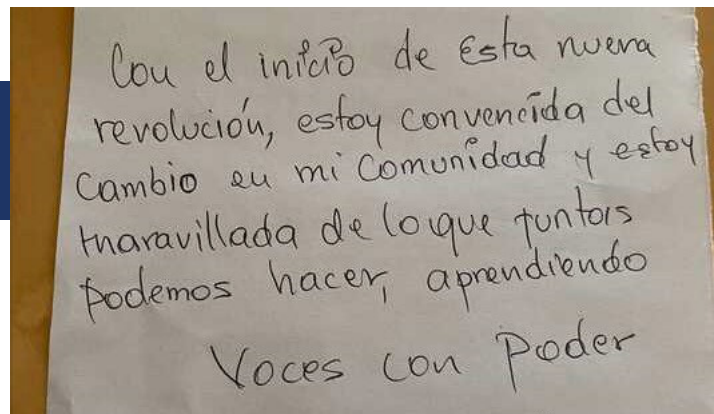 Con el inicio de esta nueva
revolución, estoy convencida del
cambio en mi comunidad y estoy
maravillada de lo que juntos
podemos hacer, aprendiendo
Voces con Poder